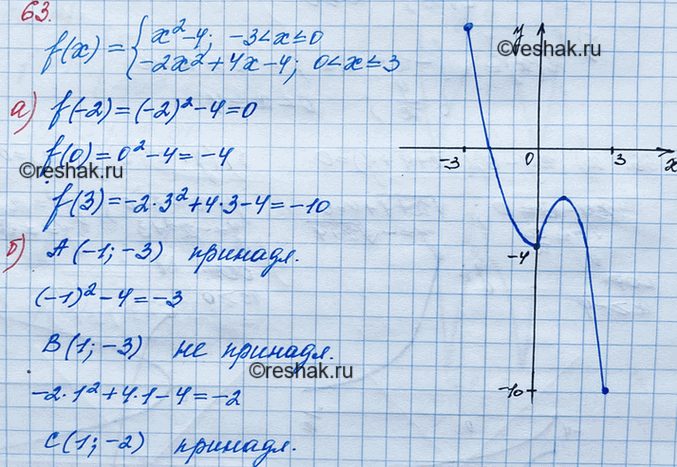 63.
f(x) = { x²-4; -3<x≤0
-2x²+4x-4; 0<x≤3
а) f(-2)=(-2)²-4=0
f(0)=0²-4=-4
f(3)=-2·3²+4·3-4=-10
б) A(-1;-3) принадл.
(-1)²-4=-3
B(1;-3) не принадл.
-2·1²+4·1-4=-2
C(1;-2) принадл.
y
-3 0 3 x
-4
-10
©reshak.ru
©reshak.ru
©reshak.ru